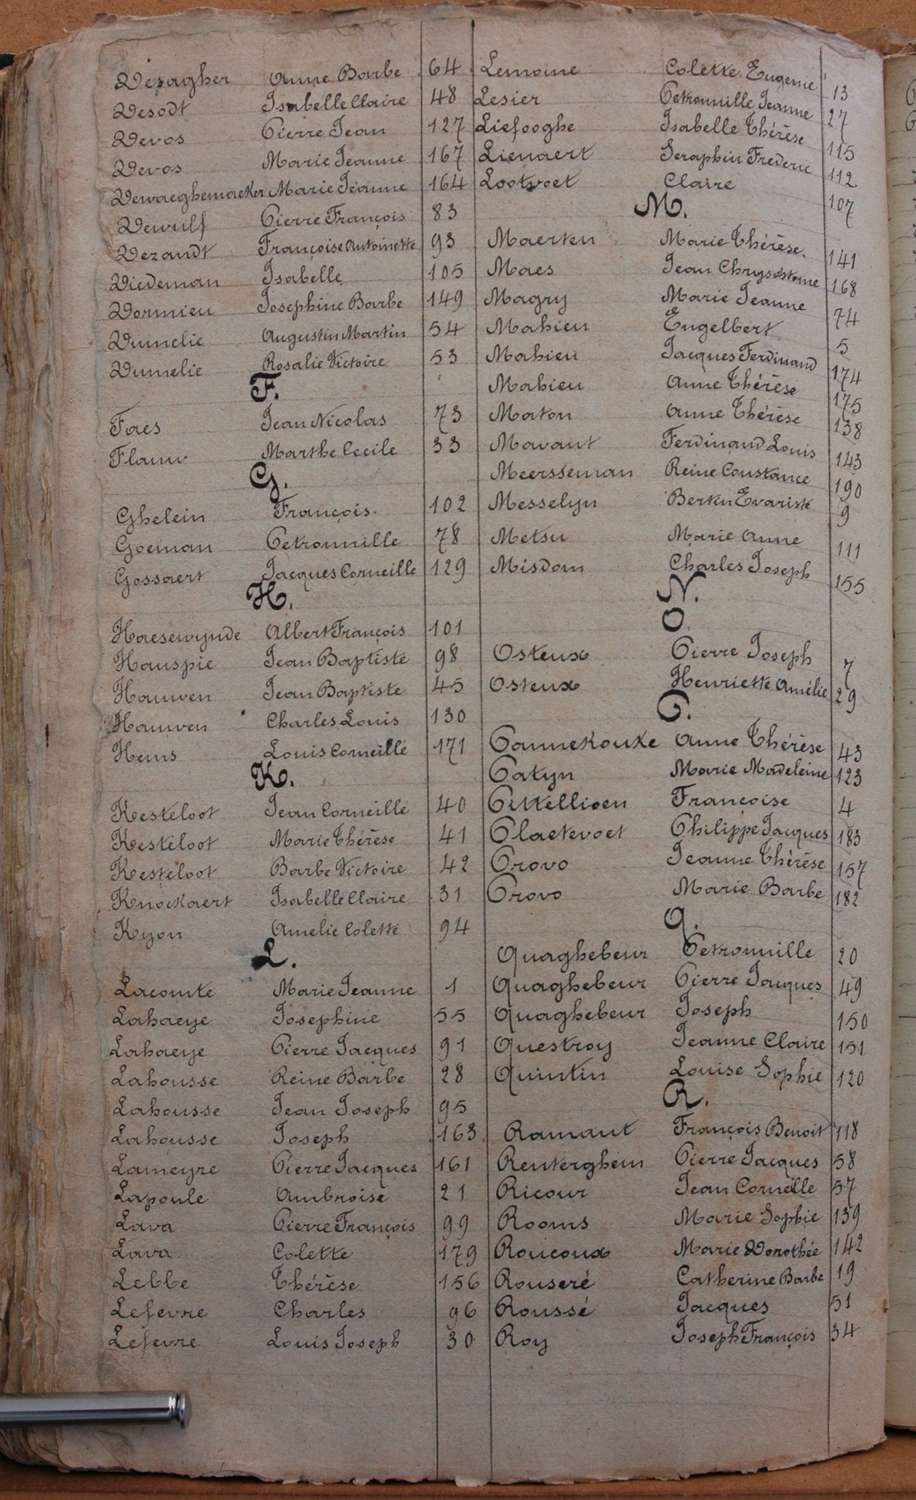 Dezagher Anne Barbe 64
Desodt Isabelle Claire 48
Devos Pierre Jean 127
Devos Marie Jeanne 167
Dewaeghemaeker Marie Jeanne 164
Dewulf Pierre François 83
Dezandt Françoise Antoinette 93
Diedeman Isabelle 105
Dormieu Josephine Barbe 149
Dumelie Augustin Martin 54
Dumelie Rosalie Victoire 53
F.
Faes Jean Nicolas 73
Flauw Marthe Cecile 33
G.
Ghelein François 102
Goeman Petronnille 78
Gossaert Jacques Corneille 129
H.
Haesewynde Albert François 101
Hauspie Jean Baptiste 98
Hauwen Jean Baptiste 45
Hauwen Charles Louis 130
Hems Louis Corneille 171
K.
Kesteloot Jean Corneille 40
Kesteloot Marie Thérèse 41
Kesteloot Barbe Victoire 42
Knockaert Isabelle Claire 31
Kyon Amelie Colette 94
L.
Lacomte Marie Jeanne 1
Lahaeye Josephine 55
Lahaeye Pierre Jacques 91
Lahousse Reine Barbe 28
Lahousse Jean Joseph 95
Lahousse Joseph 163
Lameyre Pierre Jacques 161
Lapoule Ambroise 21
Lava Pierre François 99
Lava Colette 179
Lebbe Thérèse 156
Lefevre Charles 96
Lefevre Louis Joseph 30
Lemoine Colette Eugenie 13
Lesier Petronnille Jeanne 27
Liefooghe Isabelle Thérèse 115
Lienaert Seraphin Frederic 112
Lootvoet Claire 107
M.
Maerten Marie Thérèse 141
Maes Jean Chrysostome 168
Magry Marie Jeanne 74
Mahieu Engelbert 5
Mahieu Jacques Ferdinand 174
Mahieu Anne Thérèse 175
Maton Anne Thérèse 138
Mavaut Ferdinand Louis 143
Meersseman Reine Constance 190
Messelyn Bertin Evariste 9
Metsu Marie Anne 111
Misdom Charles Joseph 155
N.
O.
Osteux Pierre Joseph 7
Osteux Henriette Amélie 29
P.
Pannekouke Anne Thérèse 43
Patyn Marie Madeleine 123
Pittellioen Françoise 4
Plaetevoet Philippe Jacques 183
Provo Jeanne Thérèse 157
Provo Marie Barbe 182
Q.
Quaghebeur Petronnille 20
Quaghebeur Pierre Jacques 49
Quaghebeur Joseph 150
Questroy Jeanne Claire 151
Quintin Louise Sophie 120
R.
Ramaut François Benoit 118
Renterghem Pierre Jacques 58
Ricour Jean Corneille 57
Rooms Marie Sophie 139
Roucoux Marie Dorothée 142
Rouseré Catherine Barbe 19
Roussé Jacques 51
Roy Joseph François 34